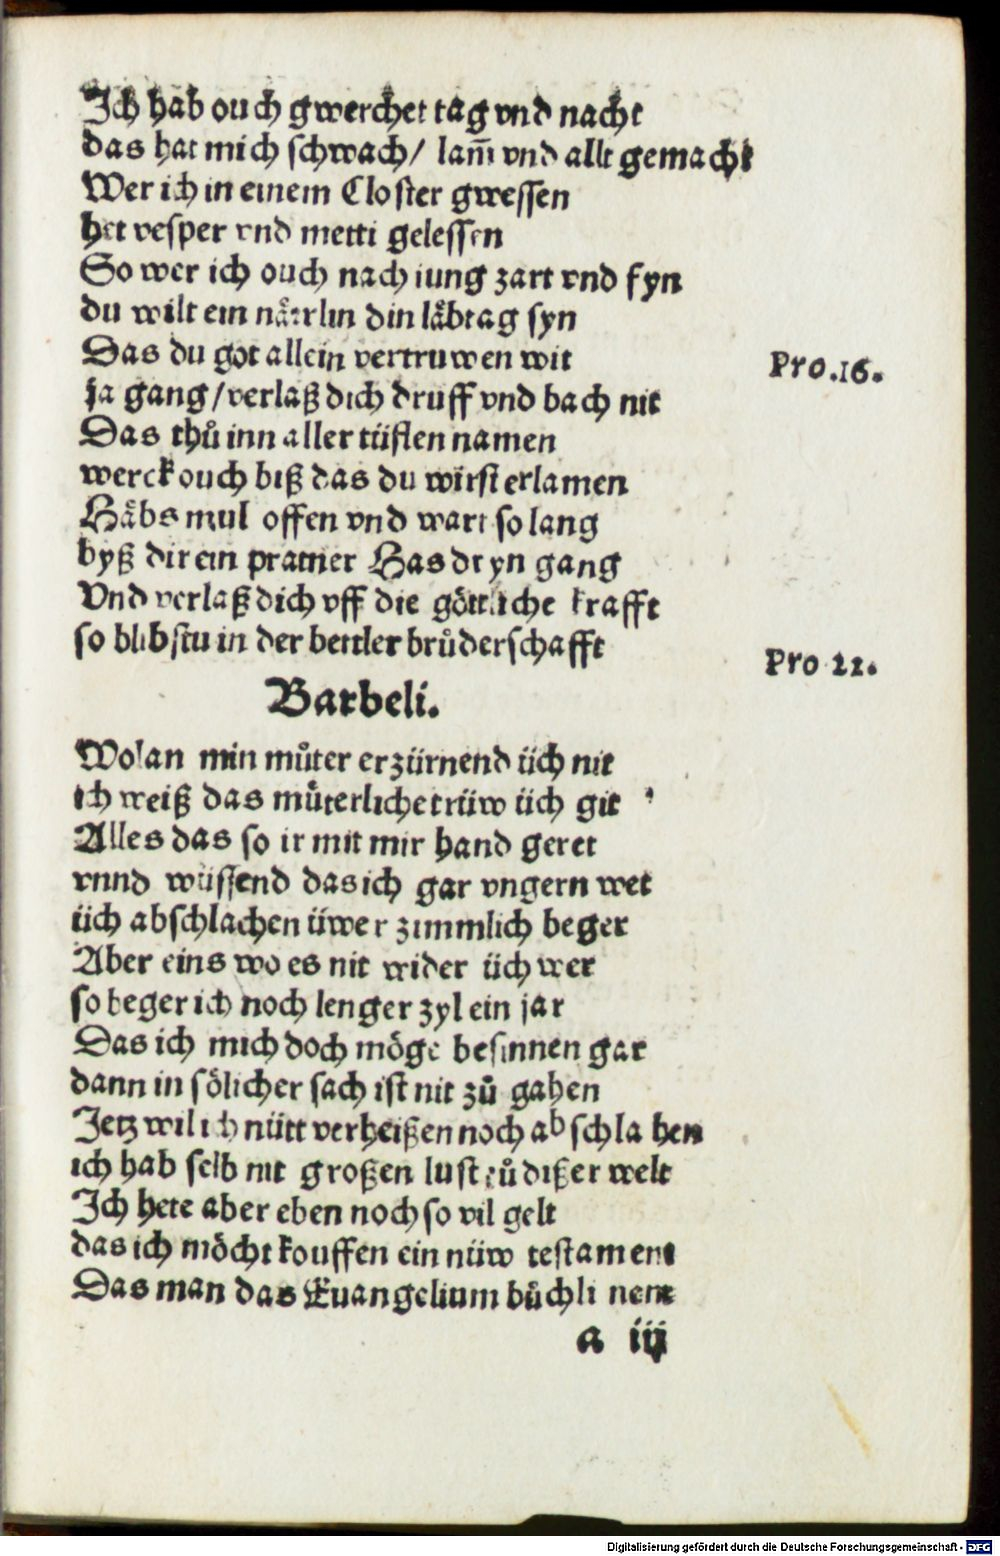 Ich hab ouch gwerchet tag vnd nacht
das hat mich schwach/ lam̄ vnd allt gemacht
Wer ich in einem Closter gwessen
het vesper vnd metti gelessen
So wer ich ouch nach iung zart vnd fyn
du wilt ein närrlin din läbtag syn
Das du got allein vertruwen wit
Pro.16.
ja gang/verlaß dich druff vnd bach nit
Das thů inn aller tüflen namen
werck ouch biß das du wirst erlamen
Häbs mul offen vnd wart so lang
byß dir ein Has dryn gang
Vnd verlaß dich vff die göttliche krafft
so blibstu in der bettler brůderschafft
Pro 22.
Barbeli.
Wolan min můter erzürnend üch nit
ich weiß das můterliche trüw üch git
Alles das so ir mit mir hand geret
vnnd wüssend das ich gar vngern wet
üch abschlachen üwer zimmlich beger
Aber eins wo es nit wider üch wer
so beger ich noch lenger zyl ein jar
Das ich mich doch möge besinnen gar
dann in sölicher sach ist nit zů gahen
Jetz wil ich nütt verheißen noch abschlahen
ich hab selb nit großen lust zů dißer welt
Ich hete aber eben noch so vil gelt
das ich möcht kouffen ein nüw testament
Das man das Euangelium bůchli nent
a iij
Digitalisierung gefördert durch die Deutsche Forschungsgemeinschaft - DFG